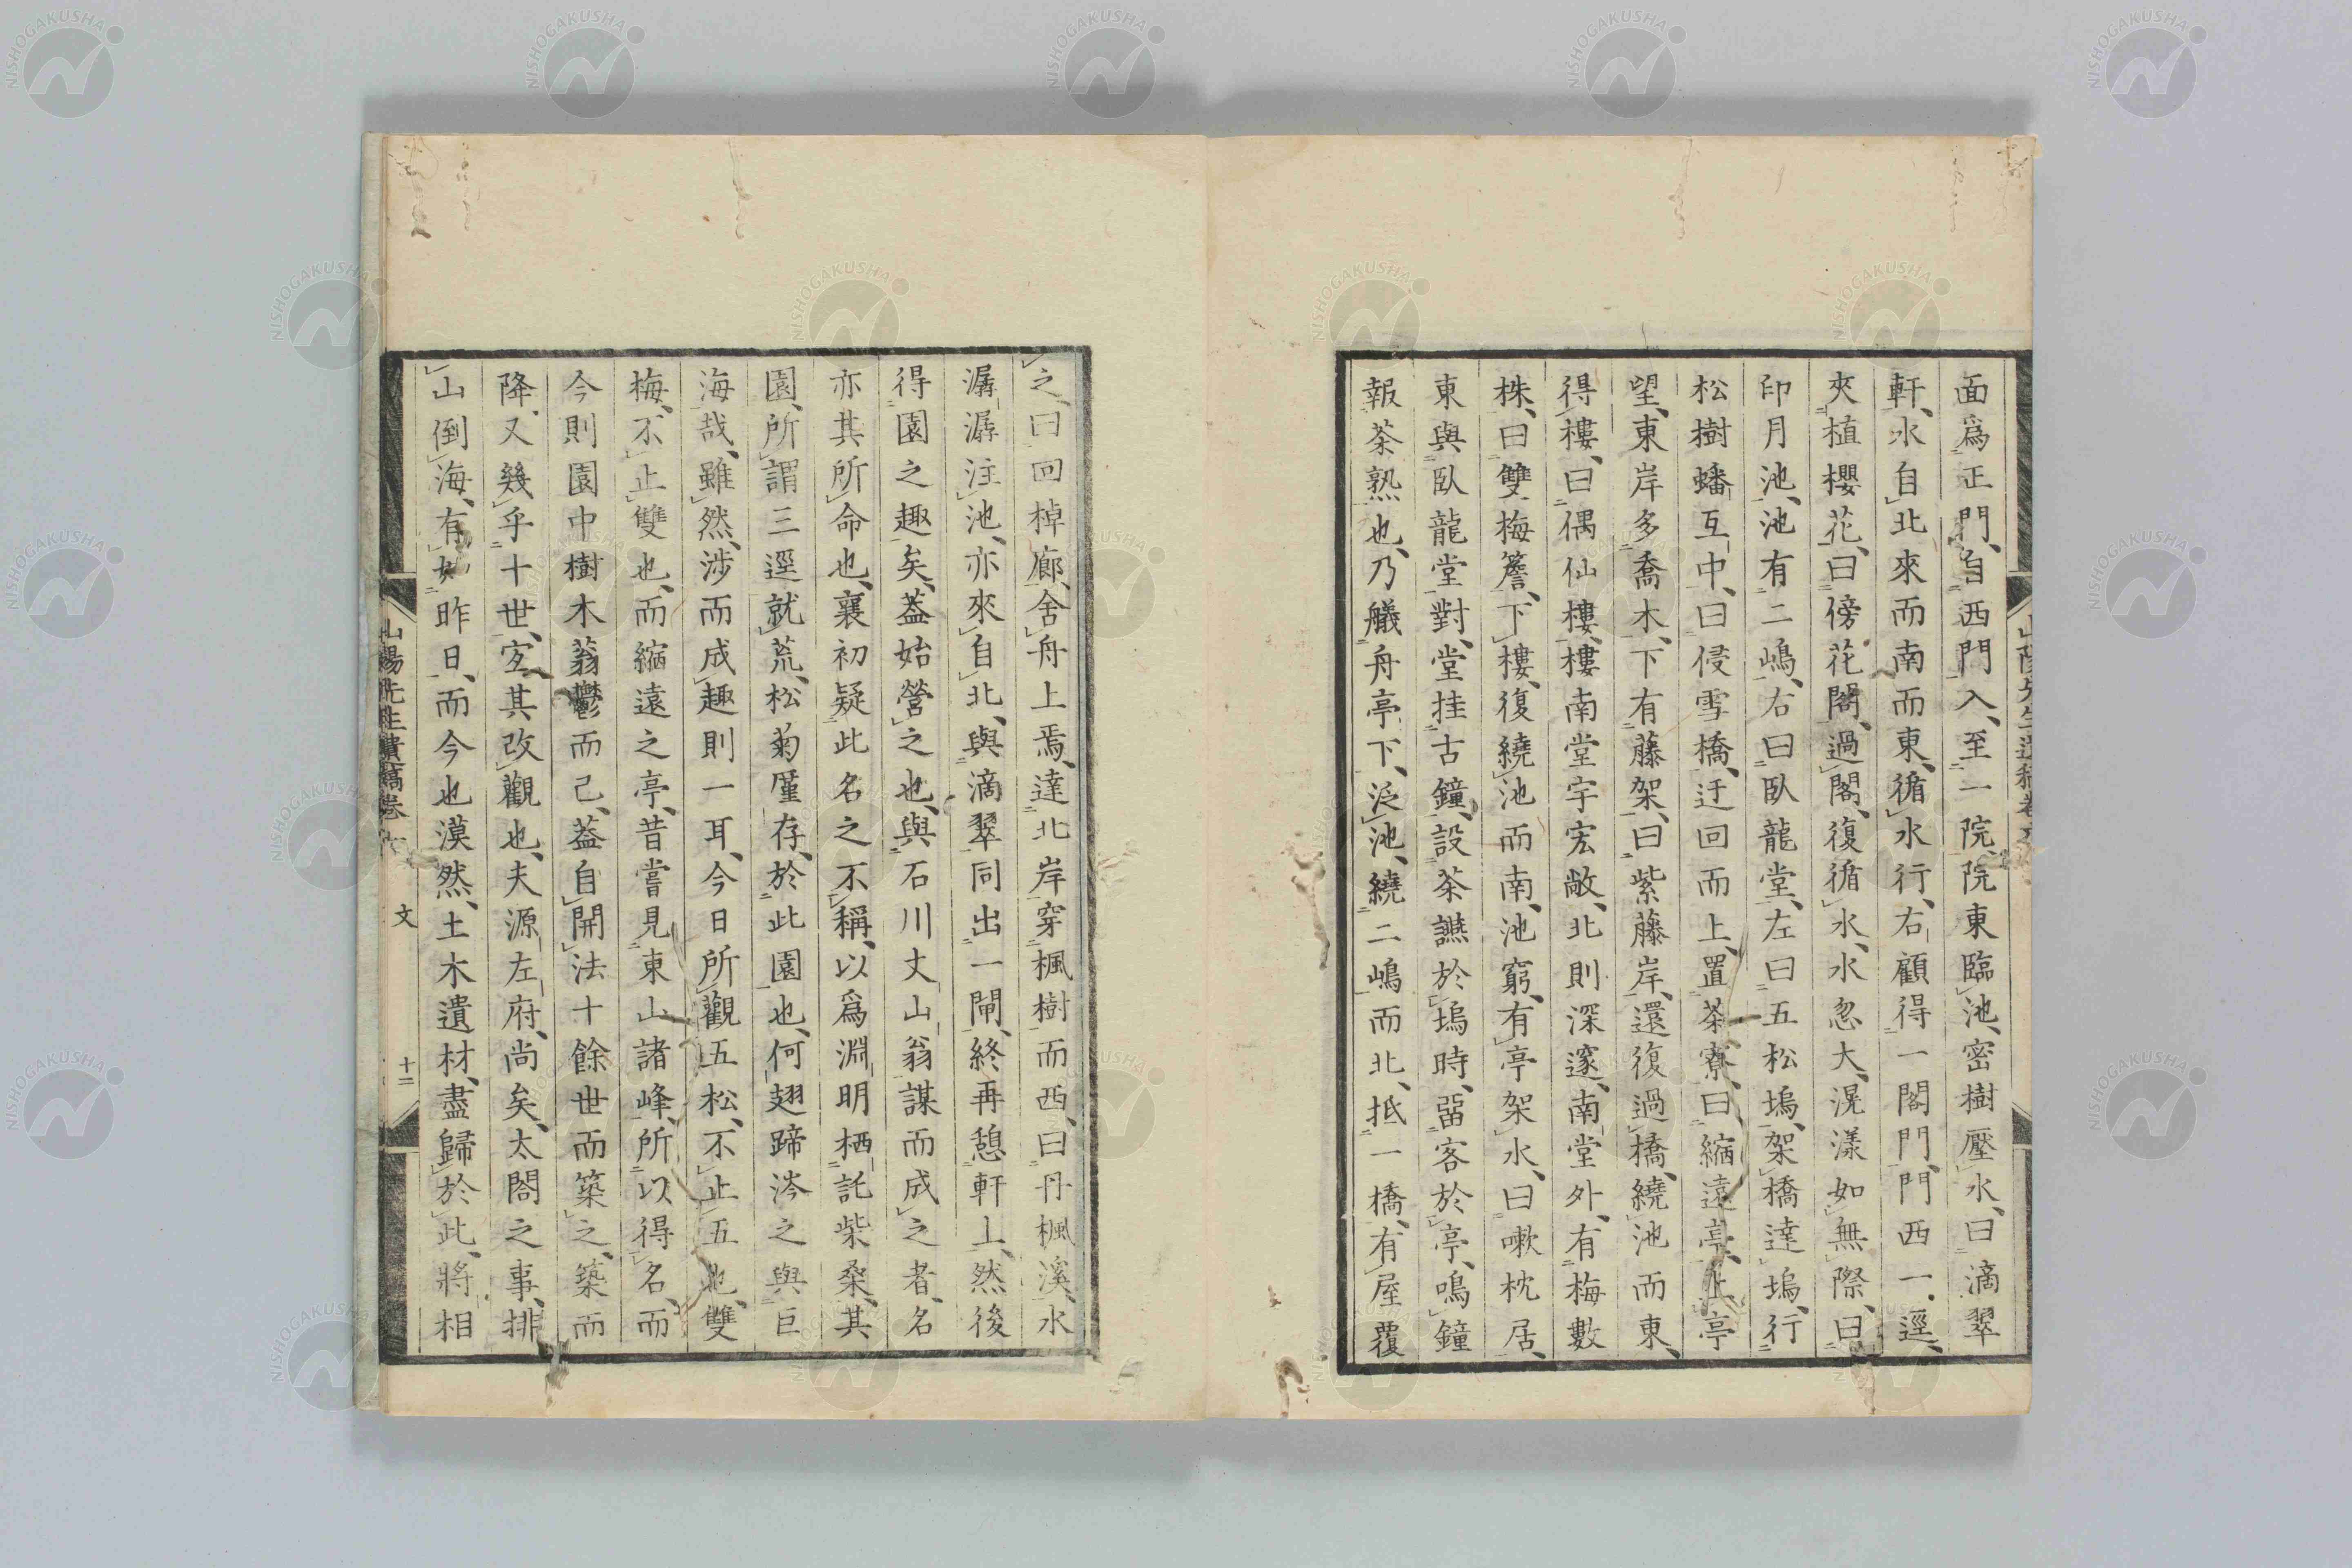 面爲正門、自西門入、至一院、院東臨池、密樹壓水、曰滴翠
軒、水自北來而南而東、循水行、右顧得一閣門、門西一逕、
夾植櫻花、曰傍花閣、過閣、復循水、水忽大、滉漾如無際、曰
印月池、池有二嶋、右曰臥龍堂、左曰五松塢、架橋達塢、行
松樹蟠互中、曰侵雪橋、迂回而上、置茶寮、曰縮遠亭、止亭
望、東岸多喬木、下有藤架、曰紫藤岸、還復過橋、繞池而東、
得樓、曰偶仙樓、樓南堂宇宏敞、北則深邃、南堂外、有梅數
株、曰雙梅簷、下樓、復繞池而南、池窮、有亭架水、曰嗽枕居、
東與臥龍堂對、堂挂古鐘、設茶讌於塢時、畱客於亭、鳴鐘
報茶熟也、乃艤舟亭下、泛池、繞二嶋而北、抵一橋、有屋覆
之、曰回棹廊、舍舟上焉、達北岸穿楓樹而西、曰丹楓溪、水
潺潺注池、亦來自北、與滴翠同出一閘、終再憩軒上、然後
得園之趣矣、葢始營之也、與石川丈山翁謀而成之者、名
亦其所命也、襄初疑此名之不稱、以爲淵明栖託柴桑、其
園、所謂三逕就荒、松菊厪存、於此園也、何翅蹄涔之與巨
海哉、雖然、涉而成趣則一耳、今日所觀五松、不止五也、雙
梅、不止雙也、而縮遠之亭、昔嘗見東山諸峰、所以得名、而
今則園中樹木蓊鬱而己、葢自開法十餘世而築之、築而
降、又幾乎十世、宐其改觀也、夫源左府、尚矣、太閤之事、排
山倒海、有如昨日、而今也漠然、土木遺材、盡歸於此、將相
山陽先生遺稿卷 文 十二